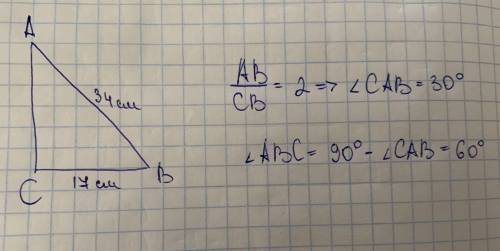 A
34 см
C
17 см
B
AB/CB = 2 => ∠CAB = 30°
∠ABC = 90° - ∠CAB = 60°